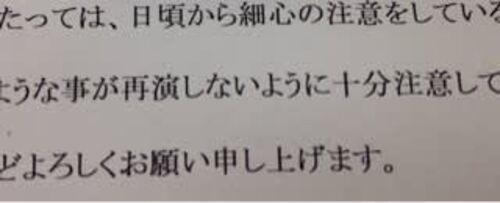 たっては、日頃から細心の注意をしている
ような事が再演しないように十分注意して
どよろしくお願い申し上げます。